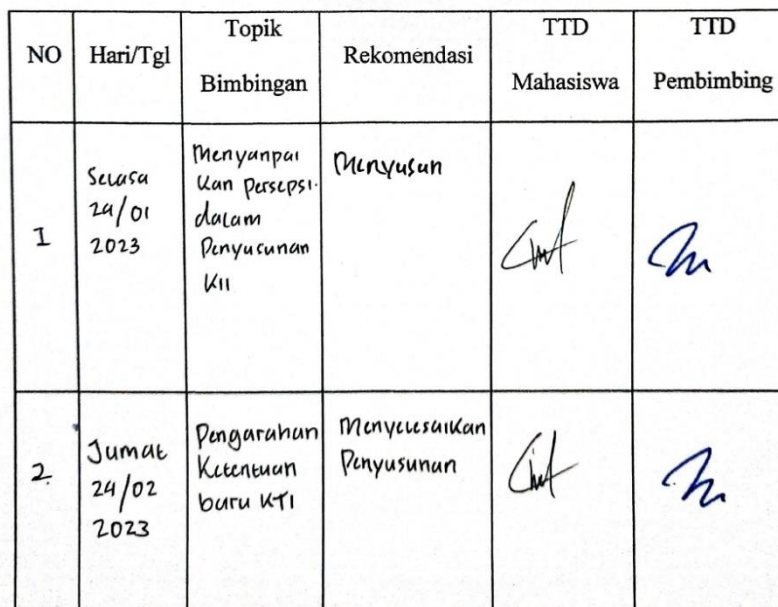 NO Hari/Tgl Topik Bimbingan Rekomendasi TTD Mahasiswa TTD Pembimbing
1
Selasa
24/01
2023
Menyanpai
kan persepsi
dalam
Penyusunan
KTI
Menyusun
2.
Jumat
24/02
2023
Pengarahan
Ketentuan
baru KTI
Menyelesaikan
Penyusunan